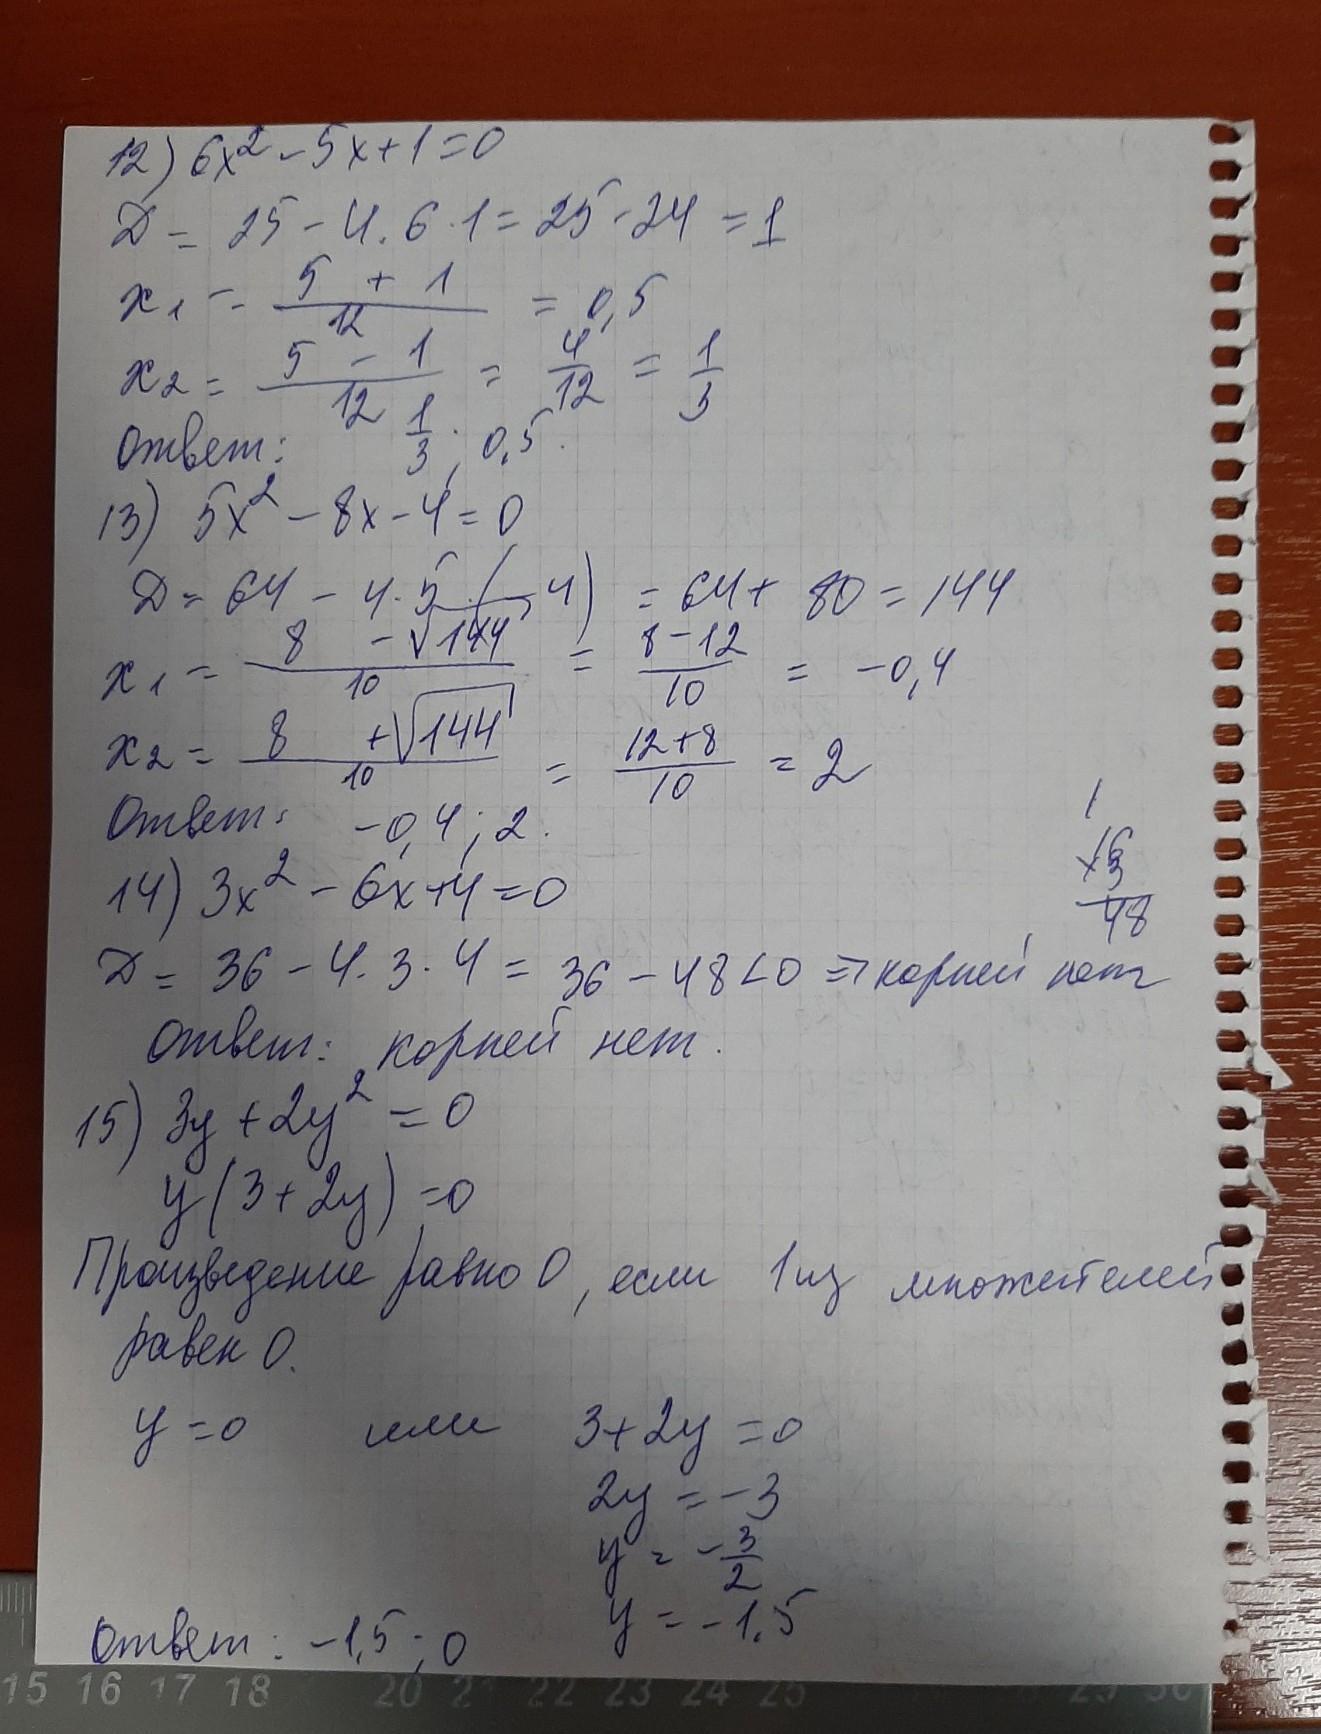 12) 6x² - 5x + 1 = 0
D = 25 - 4 · 6 · 1 = 25 - 24 = 1
x₁ = (5 + 1)/12 = 0,5
x₂ = (5 - 1)/12 = 4/12 = 1/3
Ответ: 1/3; 0,5.
13) 5x² - 8x - 4 = 0
D = 64 - 4 · 5 · (-4) = 64 + 80 = 144
x₁ = (8 - √144)/10 = (8 - 12)/10 = -0,4
x₂ = (8 + √144)/10 = (12 + 8)/10 = 2
Ответ: -0,4; 2.
1
16
×3
48
14) 3x² - 6x + 4 = 0
D = 36 - 4 · 3 · 4 = 36 - 48 < 0 ⇒ корней нет
Ответ: корней нет.
15) 3y + 2y² = 0
y(3 + 2y) = 0
Произведение равно 0, если 1 из множителей
равен 0.
y = 0 или 3 + 2y = 0
2y = -3
y = -3/2
y = -1,5
Ответ: -1,5; 0
15 16 17 18 20 21 22 23 24 25 29 30